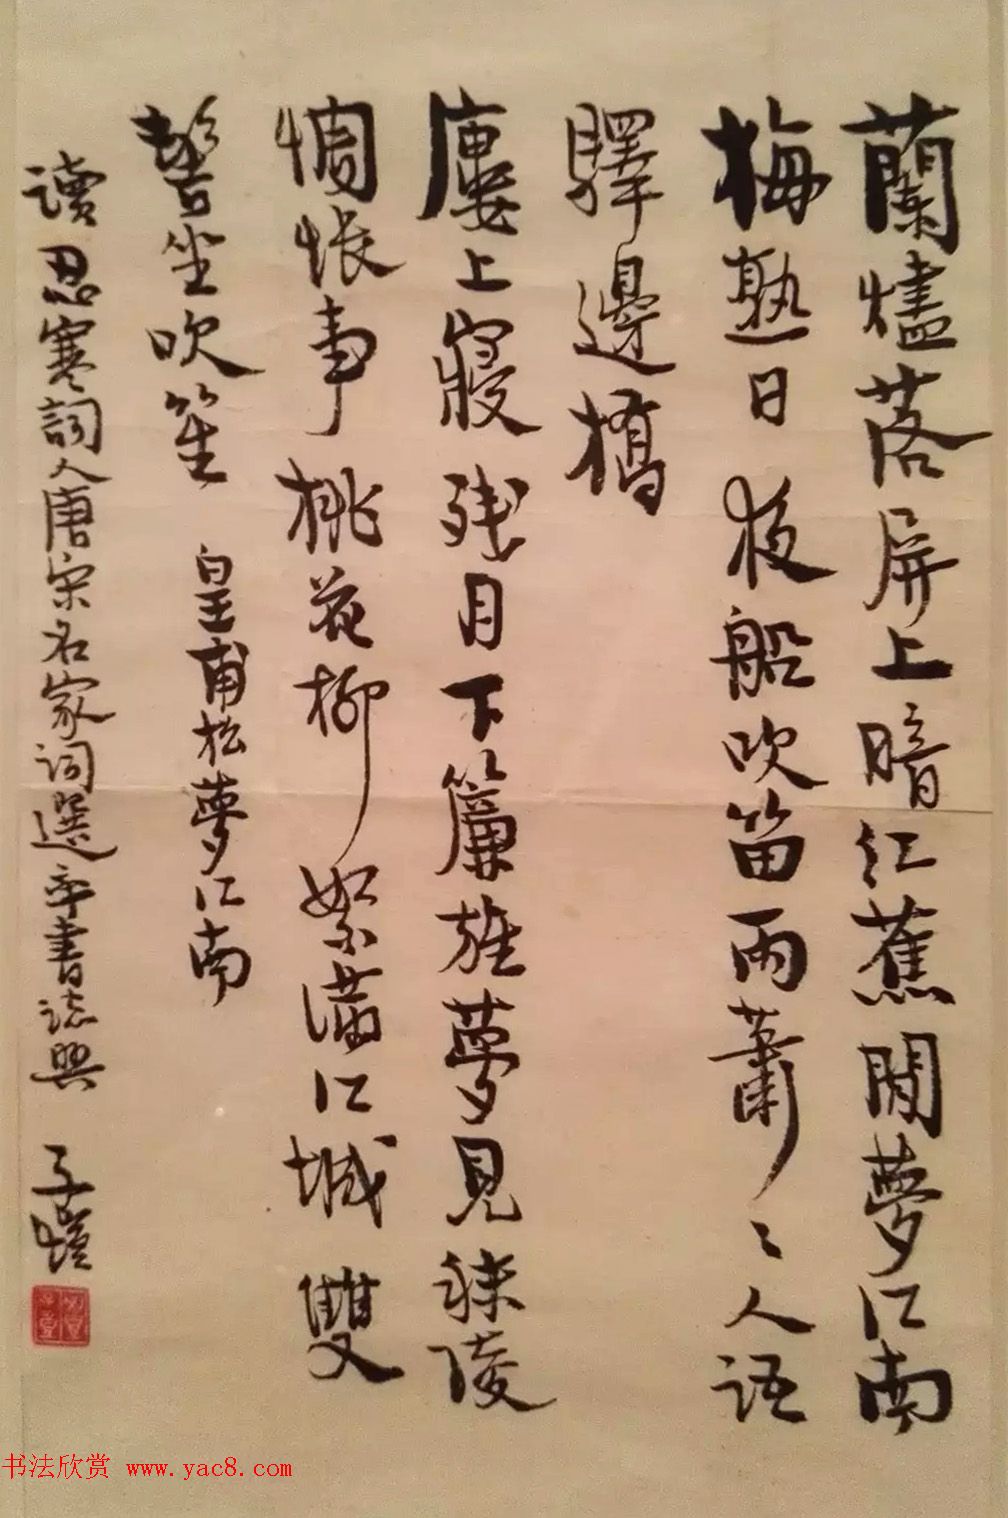 蘭燼落屏上暗紅蕉閒夢江南
梅熟日夜船吹笛雨蕭〻人語
驛邊橋
廔上寢残月下簾旌夢見秣陵
惆悵事桃花柳絮滿江城雙
髻坐吹笙 皇甫松夢江南
讀忍寒詞人唐宋名家詞選率書誌興 子愷
书法欣赏 www.yac8.com